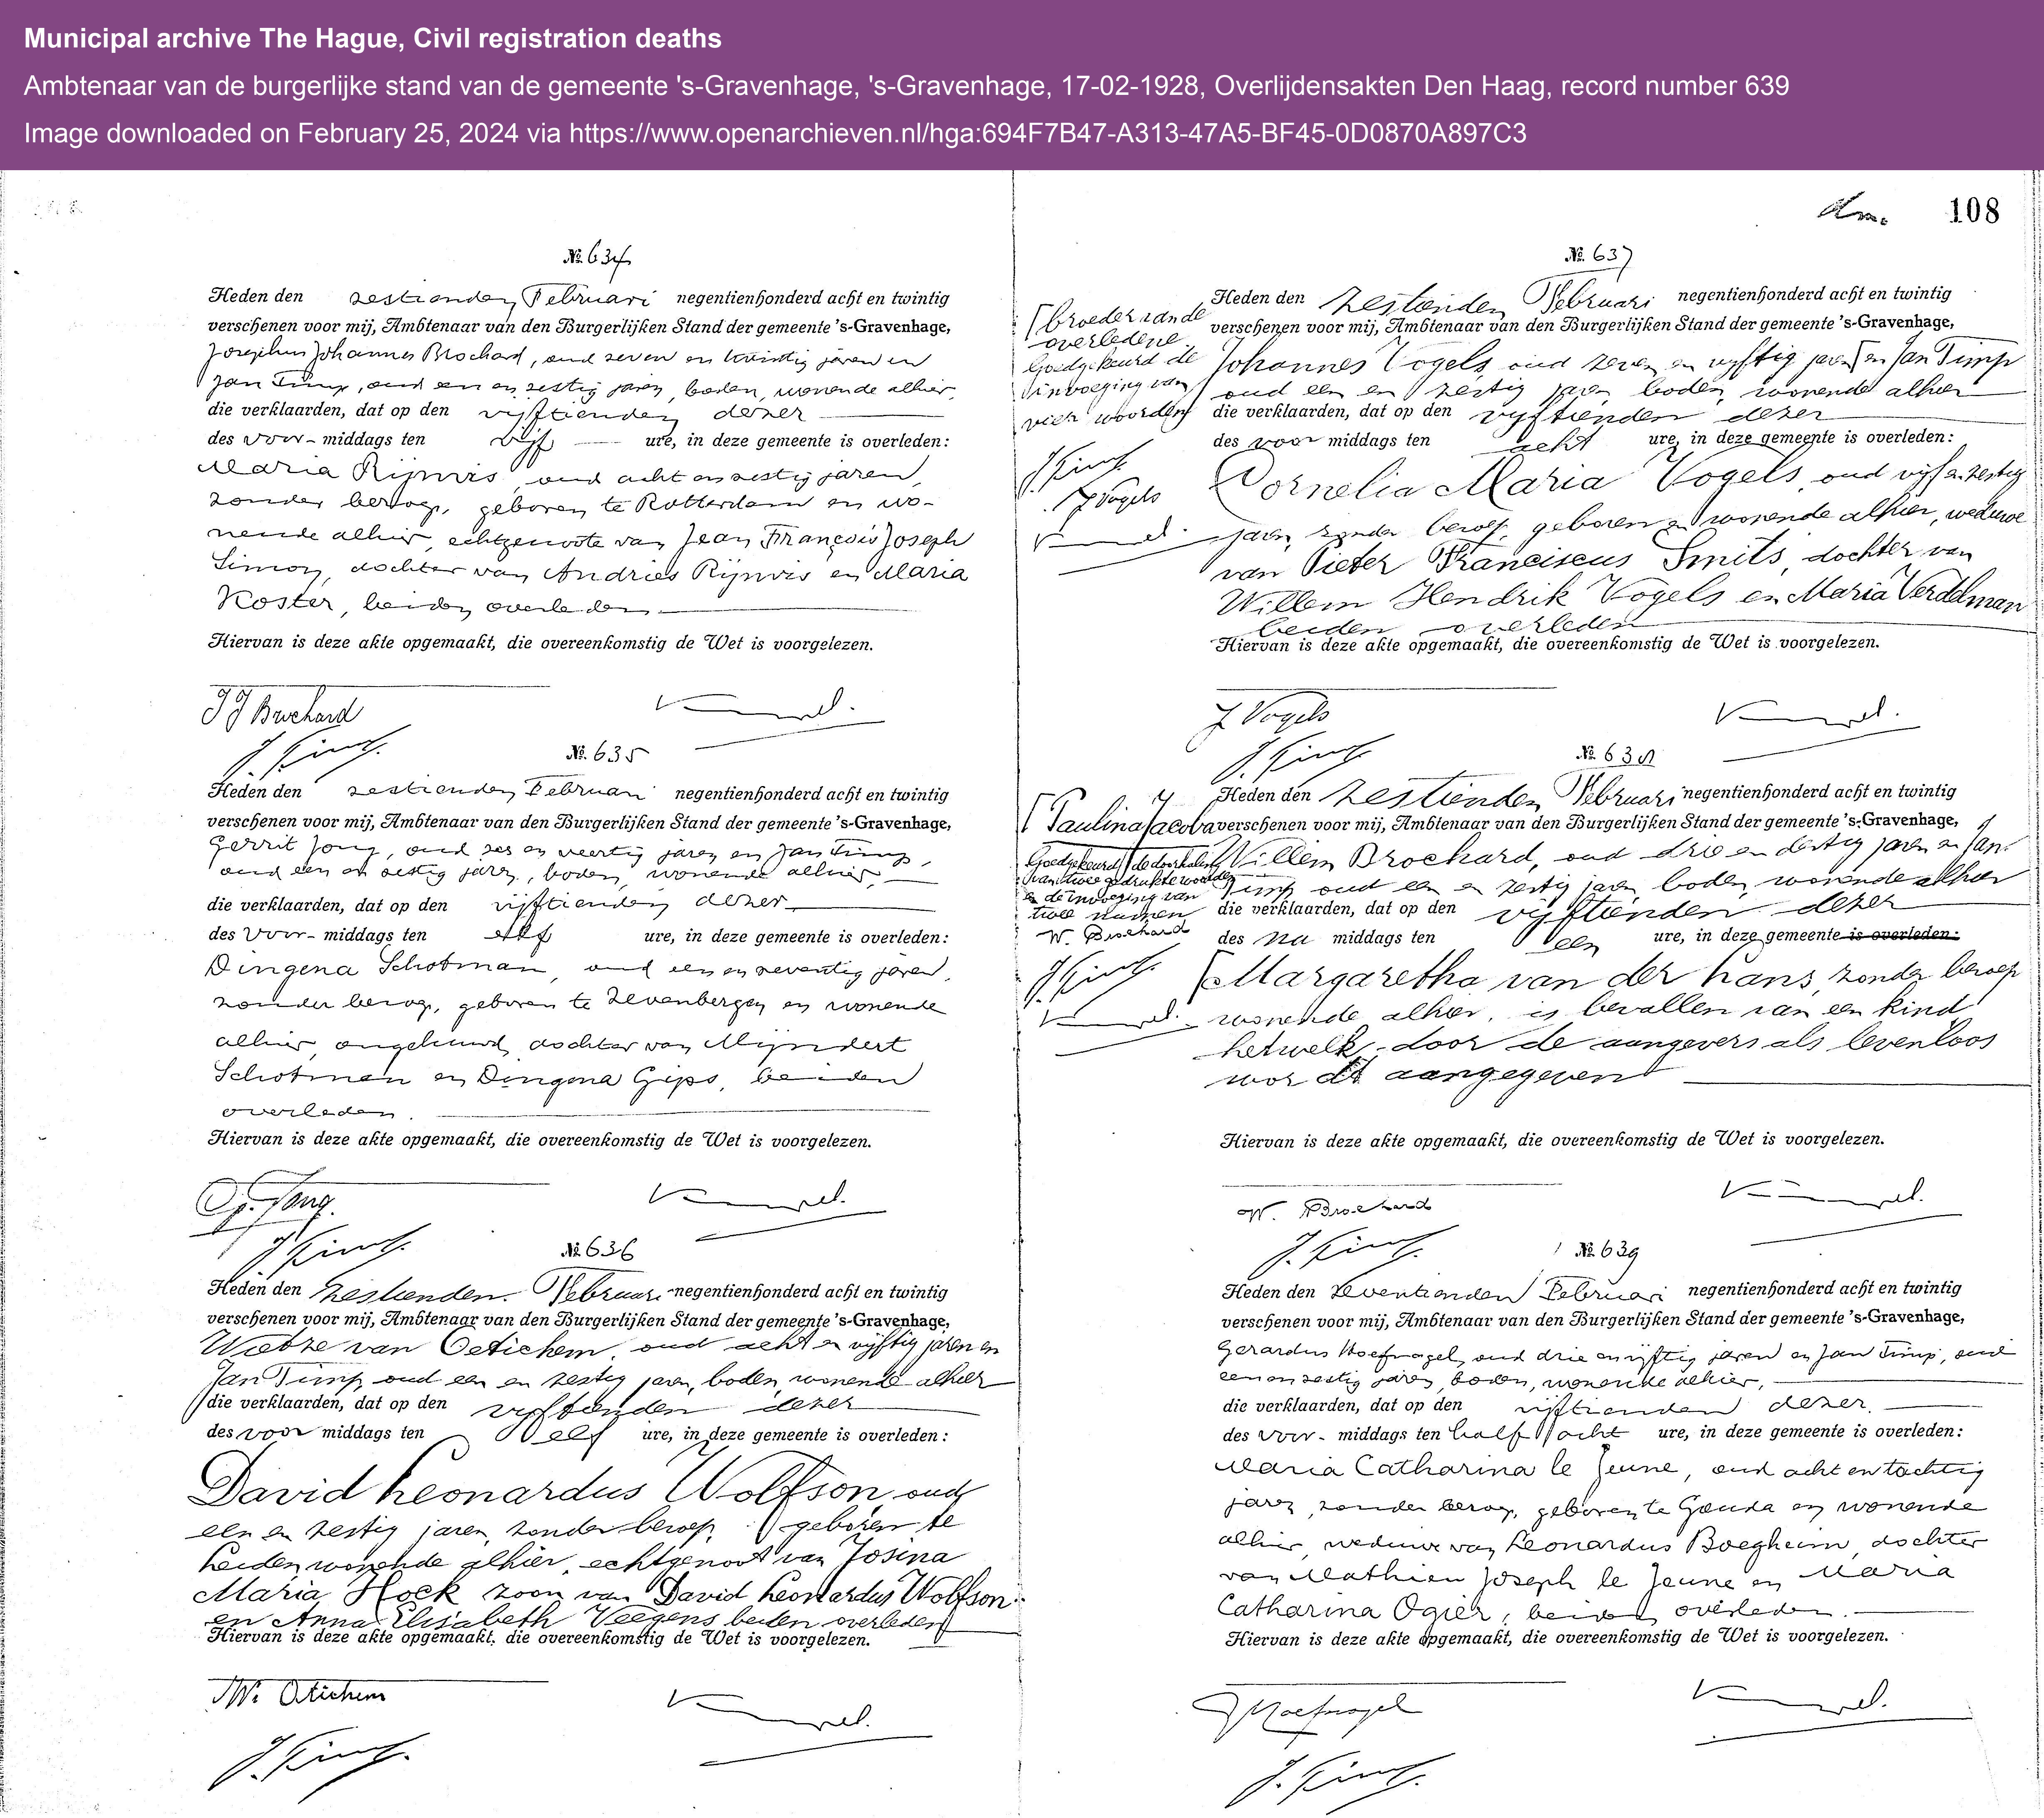 Municipal archive The Hague, Civil registration deaths
Ambtenaar van de burgerlijke stand van de gemeente 's-Gravenhage, 's-Gravenhage, 17-02-1928, Overlijdensakten Den Haag, record number 639
Image downloaded on February 25, 2024 via https://www.openarchieven.nl/hga:694F7B47-A313-47A5-BF45-0D0870A897C3
№ 634
Heden den zestienden Februari negentienhonderd acht en twintig
verschenen voor mij, Ambtenaar van den Burgerlijken Stand der gemeente 's-Gravenhage,
Josephus Johannes Brochard, oud zeven en twintig jaren en
Jan Timp, oud een en zestig jaren, boden, wonende alhier
die verklaarden, dat op den vijftienden dezer
des voor-middags ten vijf ure, in deze gemeente is overleden:
Maria Rijnvis, oud acht en zestig jaren,
zonder beroep, geboren te Rotterdam en wo-
nende alhier, echtgenoote van Jean François Joseph
Simon, dochter van Andries Rijnvis en Maria
Koster, beiden overleden.
Hiervan is deze akte opgemaakt, die overeenkomstig de Wet is voorgelezen.
JJ Brochard
J. Timp.
№ 635
Heden den zestienden Februari negentienhonderd acht en twintig
verschenen voor mij, Ambtenaar van den Burgerlijken Stand der gemeente 's-Gravenhage,
Gerrit Jong, oud zes en veertig jaren en Jan Timp,
oud een en zestig jaren, boden, wonende alhier,
die verklaarden, dat op den vijftienden dezer
des voor-middags ten elf ure, in deze gemeente is overleden:
Dingena Schotman, oud een en zeventig jaren,
zonder beroep, geboren te Zevenbergen en wonende
alhier, ongehuwd, dochter van Mijndert
Schotman en Dingena Gips, beiden
overleden.
Hiervan is deze akte opgemaakt, die overeenkomstig de Wet is voorgelezen.
G. Jong.
J. Timp.
№ 636
Heden den zestienden Februari negentienhonderd acht en twintig
verschenen voor mij, Ambtenaar van den Burgerlijken Stand der gemeente 's-Gravenhage,
Wiebze van Oetichem, oud acht en vijftig jaren en
Jan Timp, oud een en zestig jaren, boden, wonende alhier
die verklaarden, dat op den vijftienden dezer
des voor middags ten elf ure, in deze gemeente is overleden:
David Leonardus Wolfson, oud
een en zestig jaren, zonder beroep, geboren te
Leiden, wonende alhier, echtgenoot van Josina
Maria Hoek zoon van David Leonardus Wolfson
en Anna Elisabeth Veegens, beiden overleden
Hiervan is deze akte opgemaakt, die overeenkomstig de Wet is voorgelezen.
J. Timp.
108
№ 637
Heden den zestienden Februari negentienhonderd acht en twintig
verschenen voor mij, Ambtenaar van den Burgerlijken Stand der gemeente 's-Gravenhage,
[broeder van de
overledene
Goedgekeurd de
invoeging van
vier woorden
J. Timp
J Vogels
Johannes Vogels oud zeven en vijftig jaren [en Jan Timp
oud een en zestig jaren, boden, wonende alhier
die verklaarden, dat op den vijftienden dezer
des voor middags ten acht ure, in deze gemeente is overleden:
Cornelia Maria Vogels, oud vijf en zestig
jaren, zonder beroep, geboren en wonende alhier, weduwe
van Pieter Franciscus Smits, dochter van
Willem Hendrik Vogels en Maria Verdelman
beiden overleden
Hiervan is deze akte opgemaakt, die overeenkomstig de Wet is voorgelezen.
J Vogels
J. Timp.
№ 638
Heden den zestienden Februari negentienhonderd acht en twintig
verschenen voor mij, Ambtenaar van den Burgerlijken Stand der gemeente 's-Gravenhage,
[Paulina Jacoba
Goedgekeurd de doorhaling
van twee gedrukte woorden
en de invoeging van
twee namen
W. Brochard
J. Timp.
Willem Brochard, oud drie en dertig jaren en Jan
Timp oud een en zestig jaren, boden, wonende alhier
die verklaarden, dat op den vijftienden dezer
des na middags ten een ure, in deze gemeente is overleden:
[Margaretha van der Lans, zonder beroep
wonende alhier, is bevallen van een kind
hetwelk door de aangevers als levenloos
wordt aangegeven
Hiervan is deze akte opgemaakt, die overeenkomstig de Wet is voorgelezen.
W. Brochard
J. Timp.
№ 639
Heden den zeventienden Februari negentienhonderd acht en twintig
verschenen voor mij, Ambtenaar van den Burgerlijken Stand der gemeente 's-Gravenhage,
Gerardus Hoefnagel, oud drie en vijftig jaren en Jan Timp, oud
een en zestig jaren, boden, wonende alhier,
die verklaarden, dat op den vijftienden dezer.
des voor-middags ten half acht ure, in deze gemeente is overleden:
Maria Catharina le Jeune, oud acht en tachtig
jaren, zonder beroep, geboren te Gouda en wonende
alhier, weduwe van Leonardus Boegheim, dochter
van Mathieu Joseph le Jeune en Maria
Catharina Ogier, beiden overleden.
Hiervan is deze akte opgemaakt, die overeenkomstig de Wet is voorgelezen.
G Hoefnagel
J. Timp.